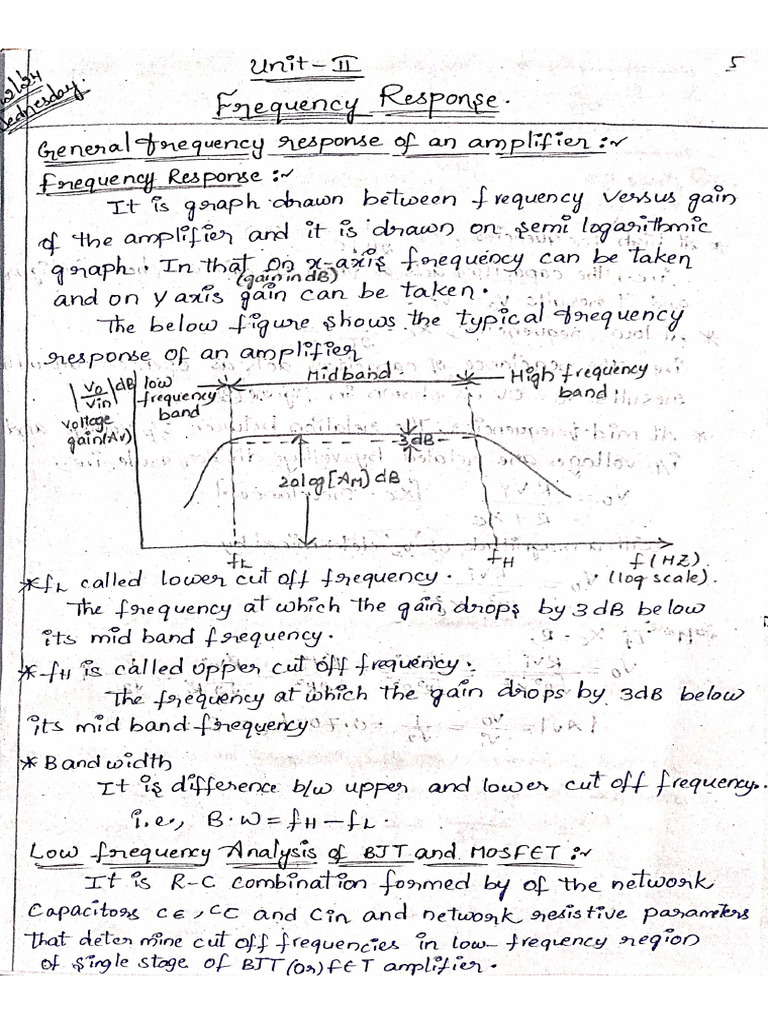 Unit-II
5
2/24
Wednesday.
Frequency Response.
General frequency response of an amplifier:~
Frequency Response:~
It is graph drawn between frequency versus gain
of the amplifier and it is drawn on semi logarithmic
graph. In that on x-axis frequency can be taken
(gain in dB)
and on y axis gain can be taken.
The below figure shows the typical frequency
response of an amplifier
|Vo/Vin| dB
low frequency band
Midband
High frequency band:
voltage gain(Av)
3dB
20log[AM]dB
fL
fH
f(HZ)
(log scale).
*fL called lower cut off frequency.
The frequency at which the gain drops by 3dB below
its mid band frequency.
*fH is called upper cut off frequency.
The frequency at which the gain drops by 3dB below
its mid band frequency
* Bandwidth
It is difference b/w upper and lower cut off frequency.
i.e., B.W = fH - fL.
Low frequency Analysis of BJT and MOSFET:~
It is R-C combination formed by of the network
Capacitors CE, CC and Cin and network resistive parameters
that determine cut off frequencies in low-frequency region
of single stage of BJT (or) FET amplifier.